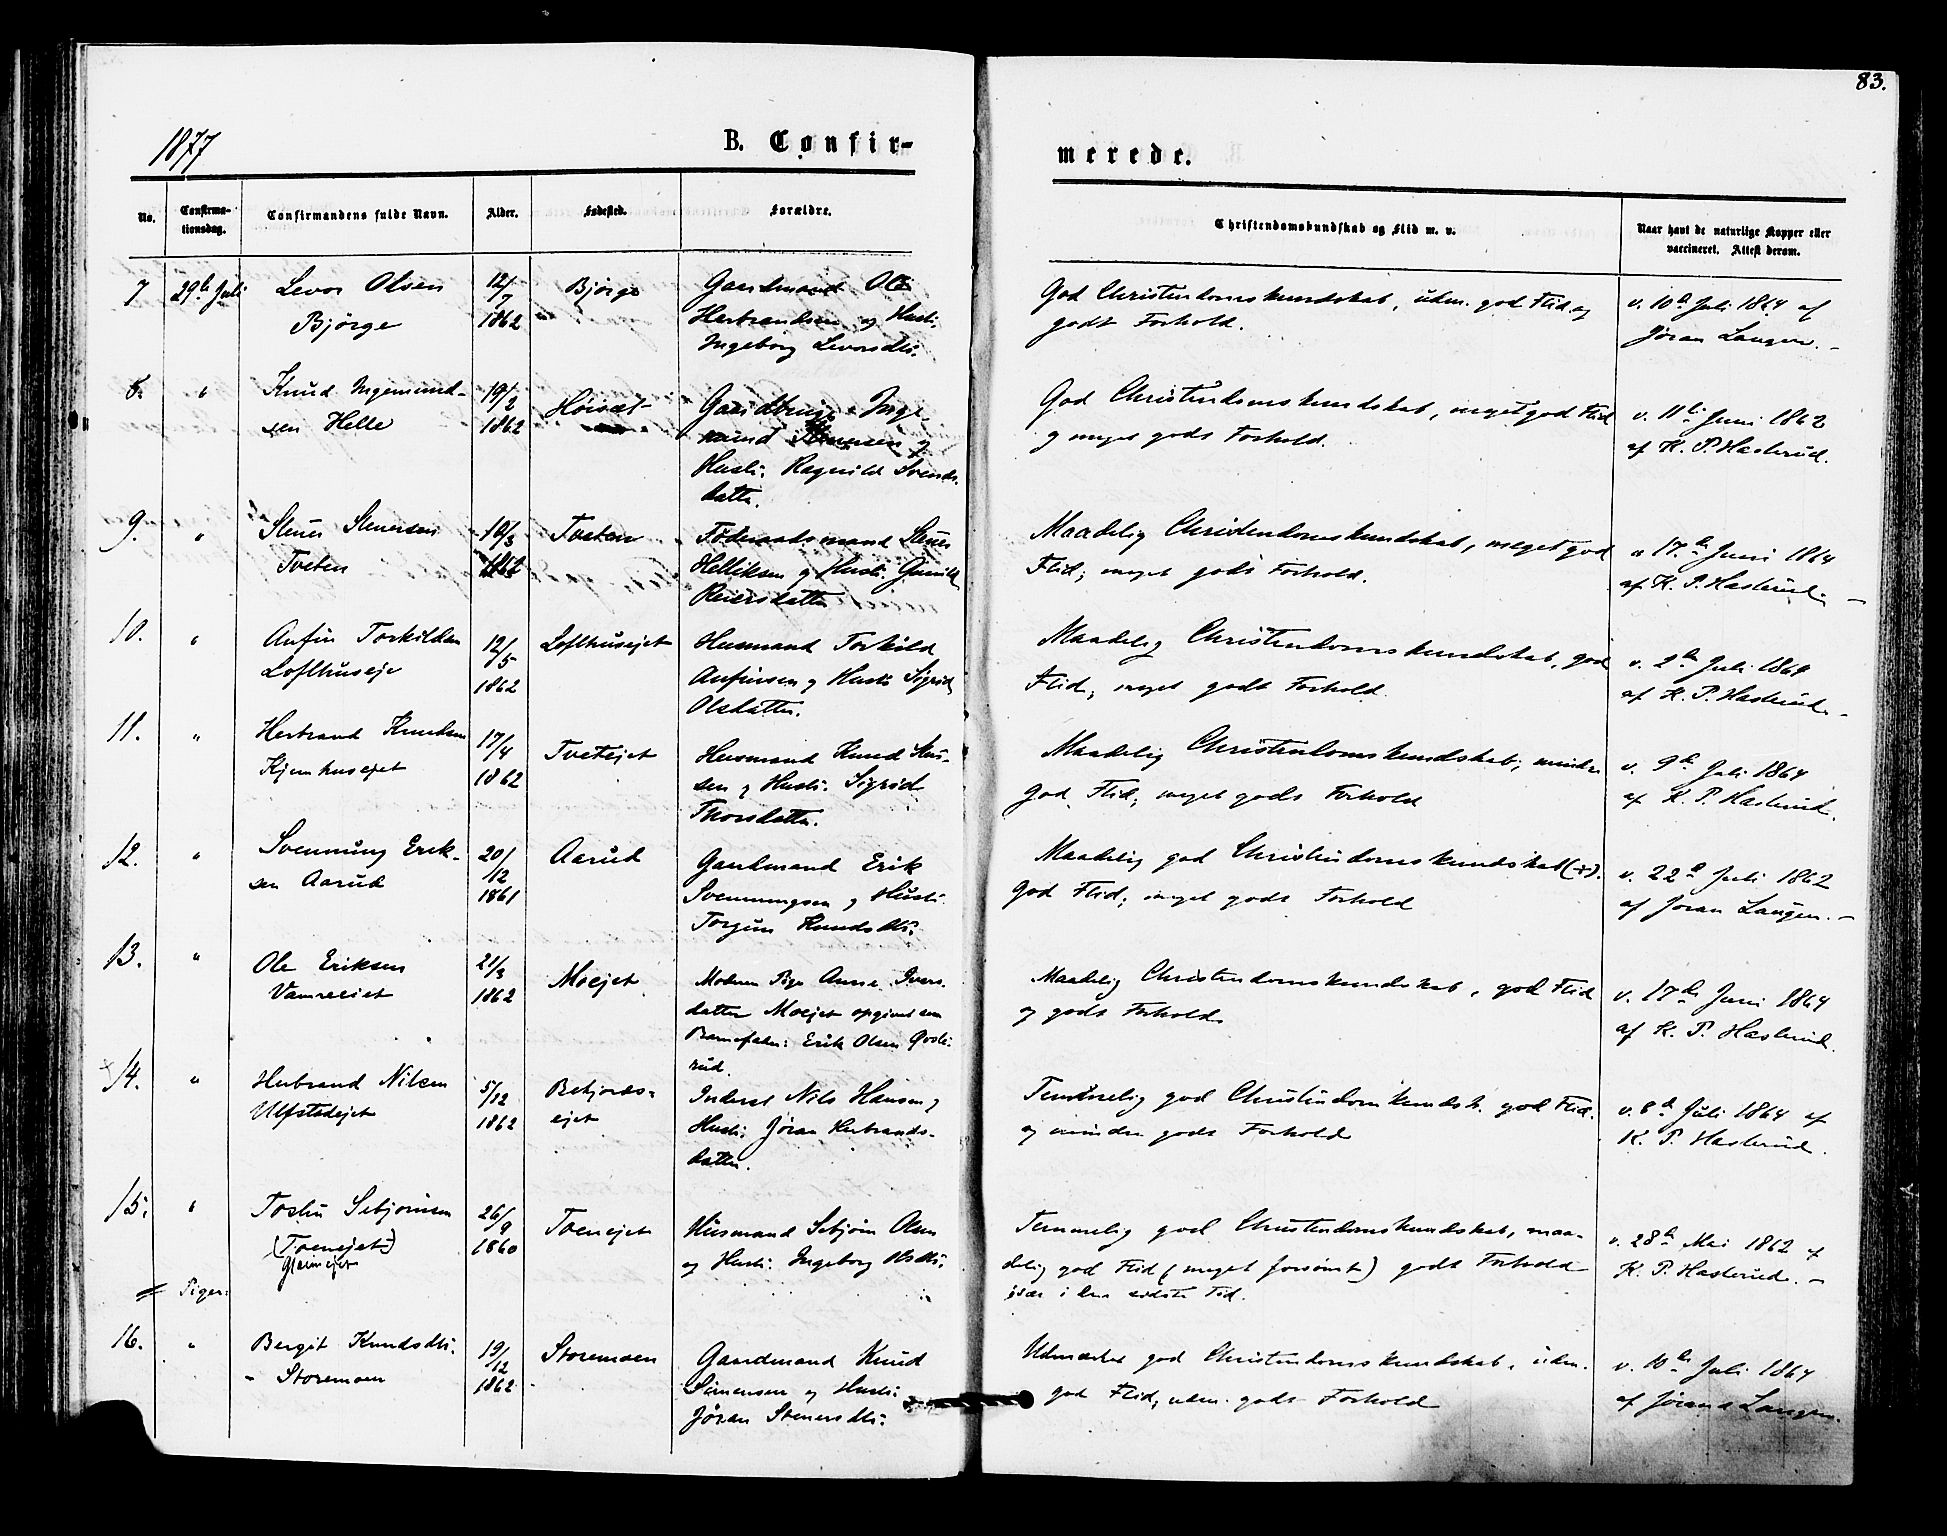 83.
1877
B. Confir-
merede.
No.
Confirma-
tionsdag.
Confirmandens fulde Navn.
Alder.
Fødested.
Forældre.
Christendomskundskab og Flid m. v.
Naar havt de naturlige Kopper eller
vaccineret. Attest derom.
7 29de Juli Levor Olsen 12/7 Bjørge Gaardmand Ole
Bjørge 1862 Herbrandsen og Hustr:
Ingeborg Levorsdtr.
God Christendomskundskab, udm. god Flid og
godt Forhold.
v. 10de Juli 1864 af
Jøran Langen. -
8. " Knud Ingemund- 19/2 Gaardbruger Inge-
sen Helle 1862 mund og
Hustr: Ragnild Svends-
datter.
God Christendomskundskab, meget god Flid
og meget godt Forhold.
v. 11te Juni 1862
af K. P. Haslerud.
9. " Stener Stenersen 10/3 Tveten Føderaadsmand Stener
Tveten Helliksen og Hustr: Gunild
Reiersdatter
Maadelig Christendomskundskab, meget god
Flid; meget godt Forhold.
" 17de Juni 1864
af K. P. Haslerud. -
10. " Anfin Torkildsen 12/5 Lofthusejet Husmand Torkild
Lofthuseje 1862 Anfinsen og Hustr: Sigrid
Olsdatter.
Maadelig Christendomskundskab, god
Flid; meget godt Forhold.
v. 2den Juli 1864
af K. P. Haslerud. -
11. " Herbrand Knudsen 17/4 Tvetejet Husmand Knud
Kjemhusejet 1862 sen og Hustr: Sigrid
Thorsdatter.
Maadelig Christendomskundskab; mindre
god Flid; meget godt Forhold
v. 9de Juli 1864
af K. P. Haslerud.
12. " Svennung Erik- 20/12 Aarud Gaardmand Erik
sen Aarud 1861 Svennungsen og Hustr:
Torgun Knudsdtr:
Maadelig god Christendomskundskab (+).
God Flid; meget godt Forhold
v. 22de Juli 1862
af Jøran Langen. -
13. " Ole Eriksen 21/3 Moejet Moderen Pige Anne Ivers-
1862 datter Moejet opgivet som
Barnefader: Erik Olsen Godts-
rud.
Maadelig Christendomskundskab, god Flid
og godt Forhold
v. 17de Juni 1864
af K. P. Haslerud.
14. " Herbrand Nilsen 5/12 Bekjords- Inderst Nils Hansen og
Ulfstedejet 1862 ejet Hustr: Jøran Herbrands-
datter.
Temmelig god Christendomskundsk. god Flid.
og mindre godt Forhold
v. 8de Juli 1864 af
K. P. Haslerud.
15. " Sebjørnsen 26/9 Toenejet Husmand Sebjørn Olsen
(Toenejet) 1860 og Hustr: Ingeborg Olsdtr:
Temmelig god Christendomskundskab, maa-
delig god Flid (meget forsømt) godt Forhold
især i den sidste Tid.
v. 28de Mai 1862 af
K. P. Haslerud. -
Piger:
16. " Bergit Knudsdtr: 19/12 Storemoen Gaardmand Knud
- Storemoen 1862 Simensen og Hustr:
Jøran Stenersdtr:
Udmærket god Christendomskundskab, udm.
god Flid; udm. godt Forhold
v. 10de Juli 1864
af Jøran Langen.